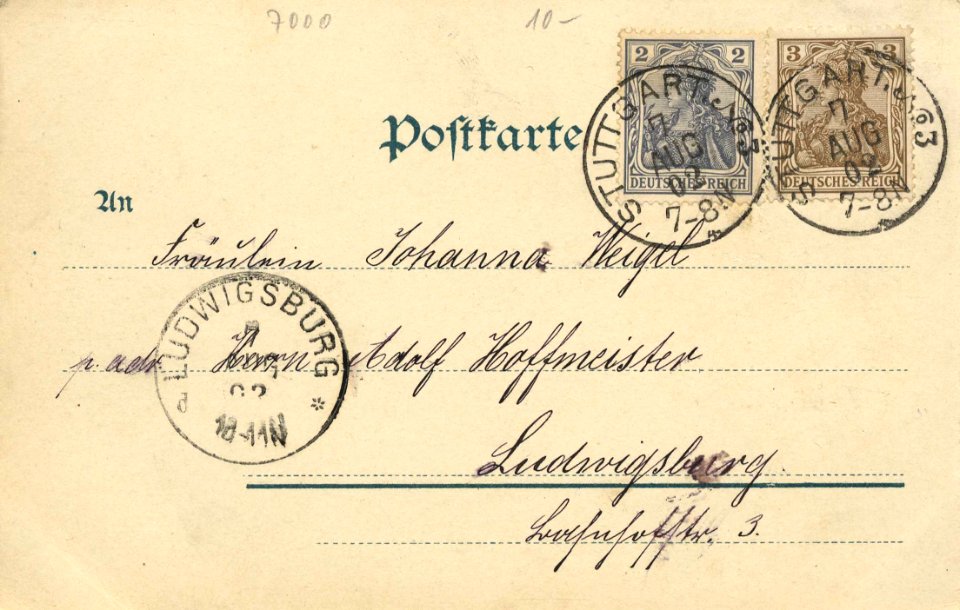 7000 10-
2 2 3 3
Postkarte
STUTTGART. № 3
7
AUG
02
7-8N
DEUTSCHES REICH
STUTTGART. № 3
7
AUG
02
7-8N
DEUTSCHES REICH
An
Fräulein Johanna Weigel
LUDWIGSBURG
7
02
10-11N
p. adr. Herrn Adolf Hoffmeister
Ludwigsburg.
Bahnhofstr. 3.